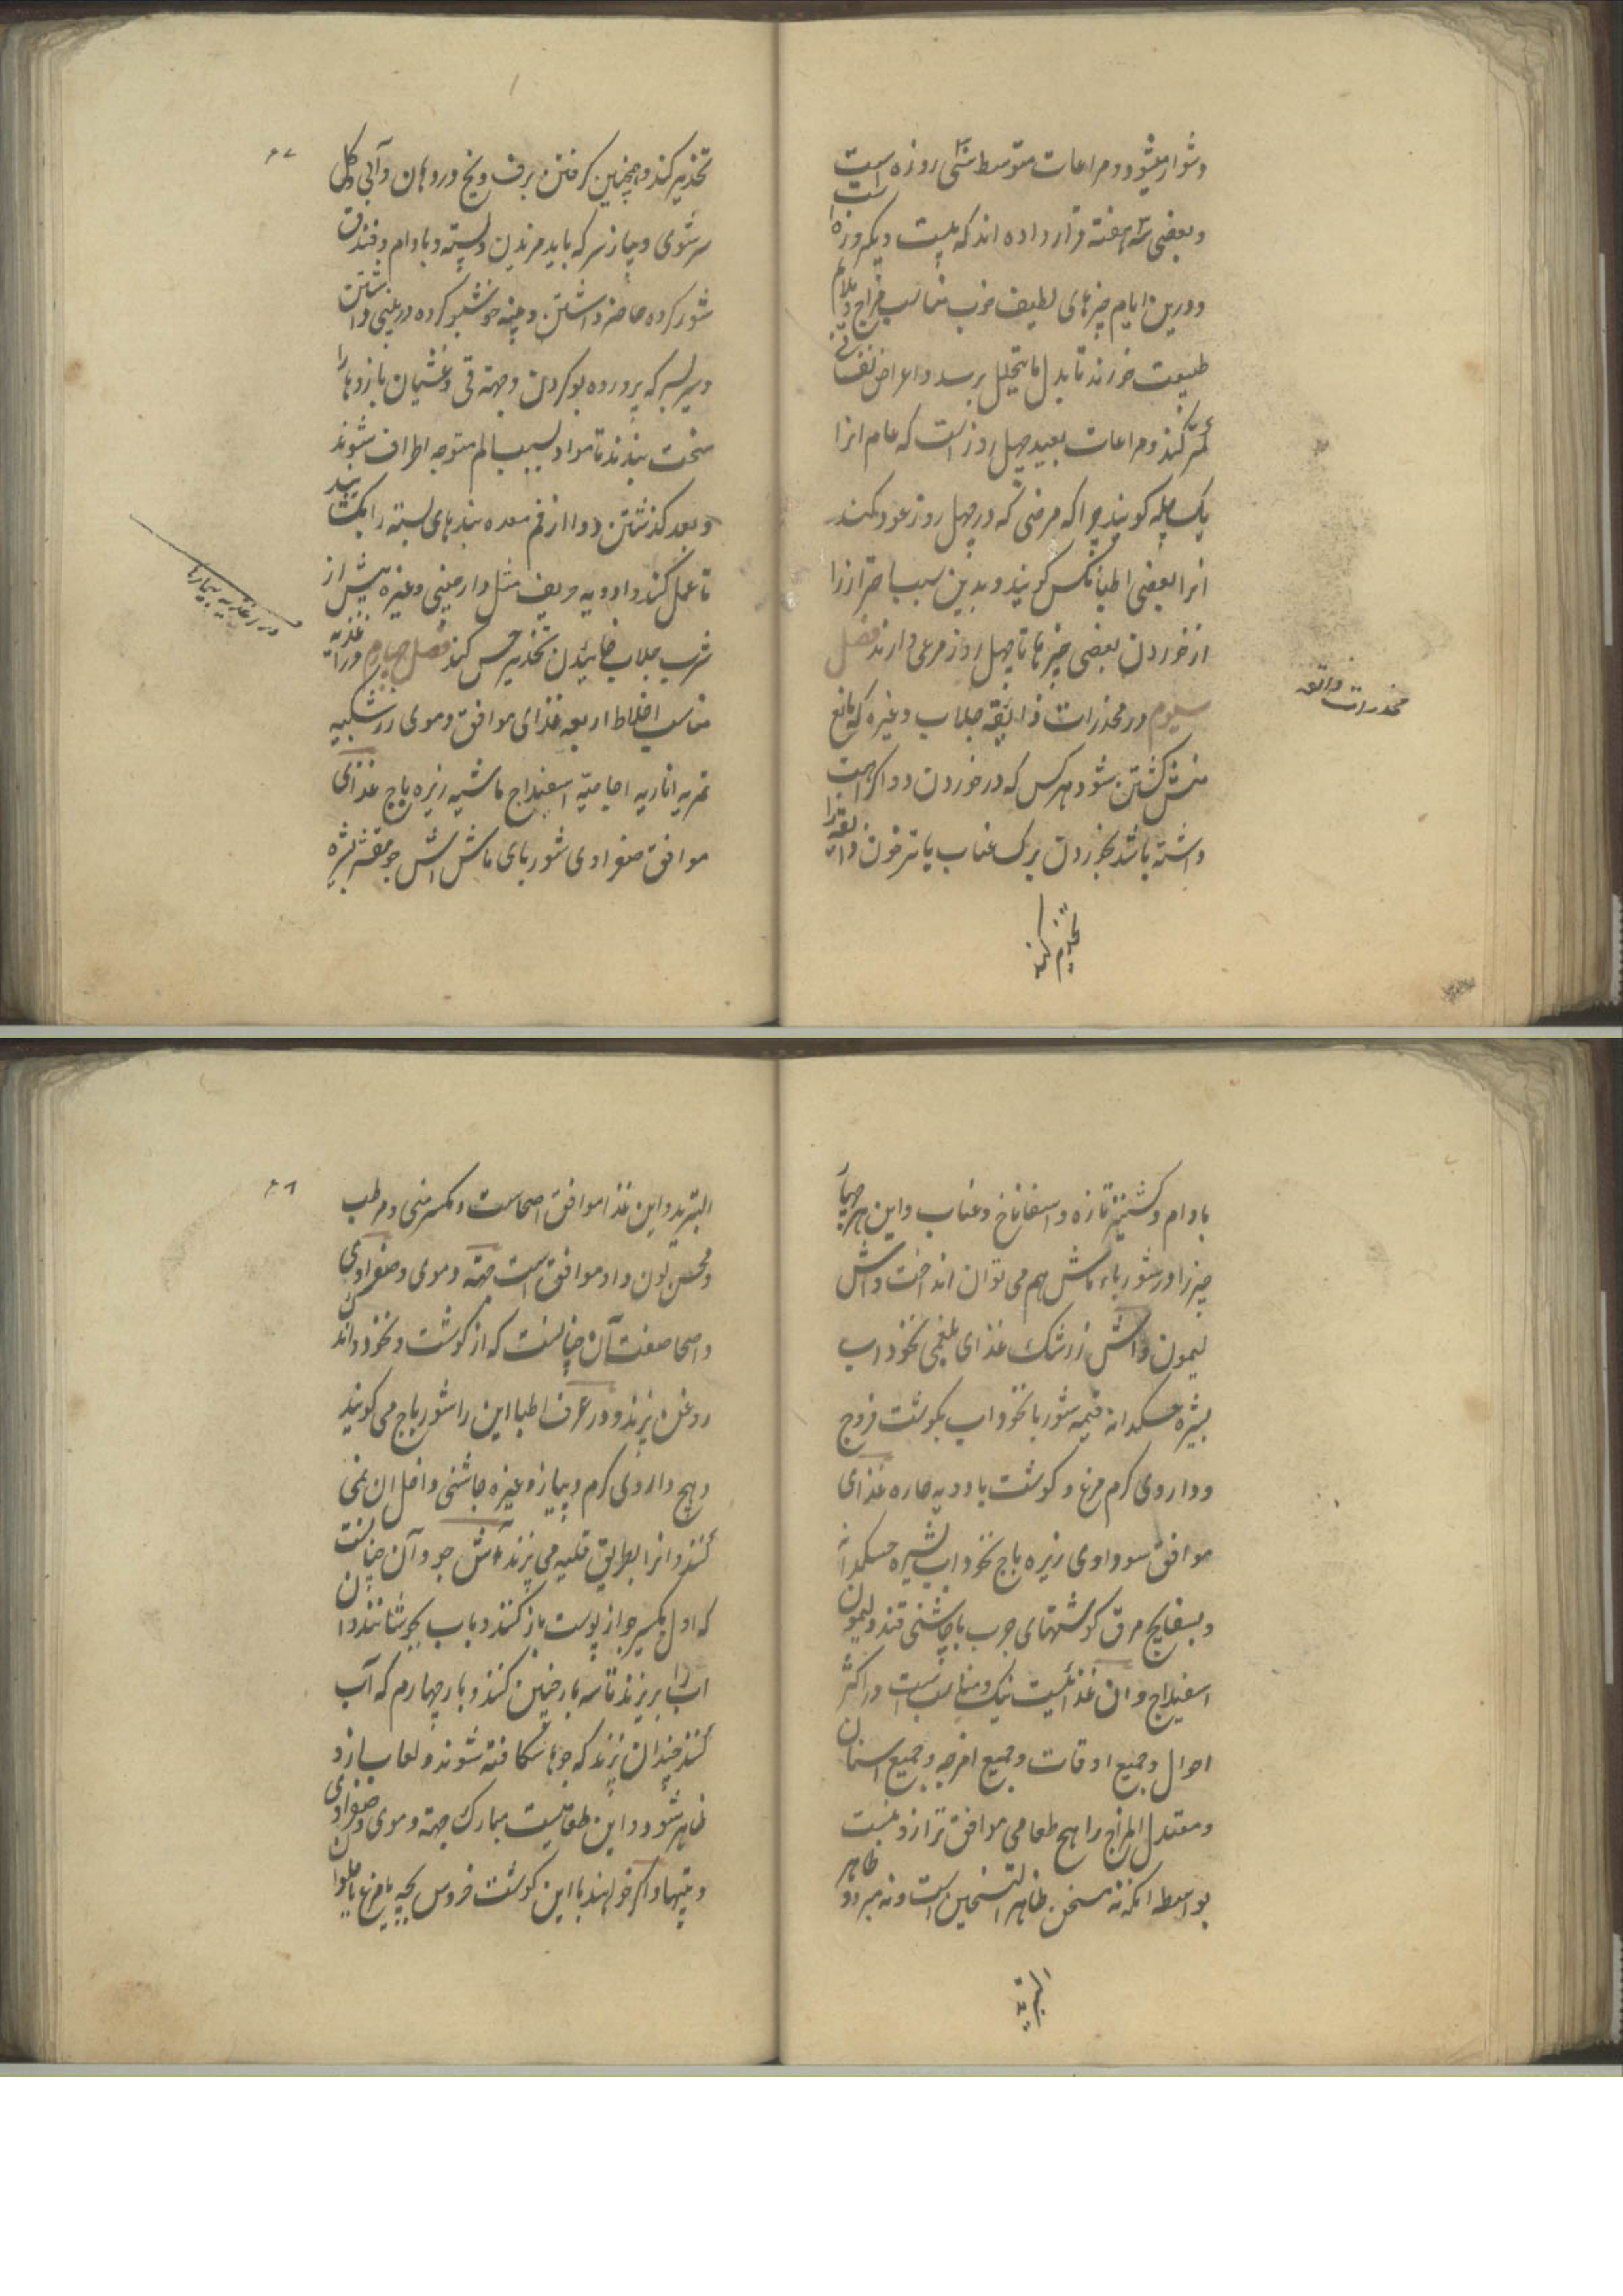 دشوار میشود و مراعات متوسط سی روزه است
و بعضی سه هفته قرار داده اند که بیست و یکروزه است
و درین ایام چیزهای لطیف خوب مناسب مزاج و ملایم
طبیعت خورند تا بدل ما یتحلل برسد و اعراض نفسانی
کمتر کنند و مراعات بعید چهل روز است که عام انرا
یک چله کویند چرا که مرضی که در چهل روز عود کند
انرا بعضی اطبا نکس کویند و بدین سبب احتراز را
از خوردن بعضی چیزها تا چهل روز مرعی دارند فصل
سیوم در مخدرات ذایقه جلاب و غیره که مانع
منش کشتن شود هر کس که در خوردن دوا کراهیت
داشته باشد بخوردن برک عناب یا ترخون ذایقه را
تخدیر کند
مخدرات ذایقه
۴۷
تخدیر کند و همچنین کرفتن برف و یخ در دهان و آبی و کل
سرشوی و پیاز سرکه باید مزیدن و پسته و بادام و فندق
شور کرده حاضر داشتن و پنبه خوشبو کرده در بینی داشتن
و سیر بسرکه پرورده بو کردن و جهة قی و غثیان بازوها را
سخت ببندند تا مواد بسبب الم متوجه اطراف شوند
و بعد کذشتن دوا از فم معده بندهای بسته را بکشایند
تا عمل کند و ادویه حریف مثل دارچینی و غیره پیش از
شرب جلاب خائیدن تخدیر حس کند فصل چهارم در اغذیه
مناسب اخلاط اربعه غذای موافق دموی زرشکیه
تمریه اناریه اجاصیه اسفیداج ماشیه زیره باج غذای
موافق صفراوی شوربای ماش اش جو مقشر بشیره
در اغذیه بیماریها
بادام و کشنیز تازه و اسفاناخ و عناب و این هر چهار
چیز را در شورباء ماش هم می توان انداخت و اش
لیمون و اش زرشک غذای بلغمی نخود اب
بشیره خسکدانه قیمه شوربا نخود اب بکوشت فروج
و داروی کرم مرغ و کوشت با ادویه حاره غذای
موافق سوداوی زیره باج نخود اب بشیره خسکدانه
و بسفایج مرق کوشتهای چرب با چاشنی قند و لیمون
اسفیداج و ان غذائیست نیک و مناسبست در اکثر
احوال و جمیع اوقات و جمیع امزجه و جمیع اسنان
و معتدل المزاج را هیچ طعامی موافق تر ازو نیست
بواسطه انکه نه مسخن ظاهر التسخین است و نه مبرد ظاهر
التبرید
۴۸
التبرید و این غذا موافق اصحاست و مکسر منی و مرطب
و محسن لون و او موافق است جهة دموی و صفراوی
و اصحا صفت آن چنانست که از کوشت و نخود و اندک
روغن پزند و در عرف اطبا این را شورباج می کویند
و هیچ داروی کرم و پیاز و غیره چاشنی داخل ان نمی
کنند و انرا بطریق قلیه می پزند آش جو و آن چنانست
که اول یکسیر جو از پوست باز کنند و باب بجوشانند و ان
اب را بریزند تا سه بار چنین کنند و بار چهارم که آب
کنند چندان پزند که جوها شکافته شوند و لعاب ازو
ظاهر شود و این طعامیست مبارک جهة دموی و صفراوی
و تبها و اکر خواهند با این کوشت خروس بچه یا مرغ یا حلوان